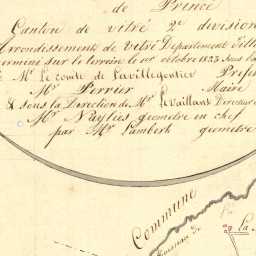 de Princé
Canton de vitré 2e division
Arrondissements de vitré Departement d'ille
terminé sur le terrein le 1er octobre 1823 sous la
Mr Le comte de Lavillegontier Préfet
Mr Perrier Maire
& sous la Direction de Mr Levaillant Directeur
Mr Nuglés géometre en chef
par Mr Lambert géometre
Commune
Ruisseau de
la